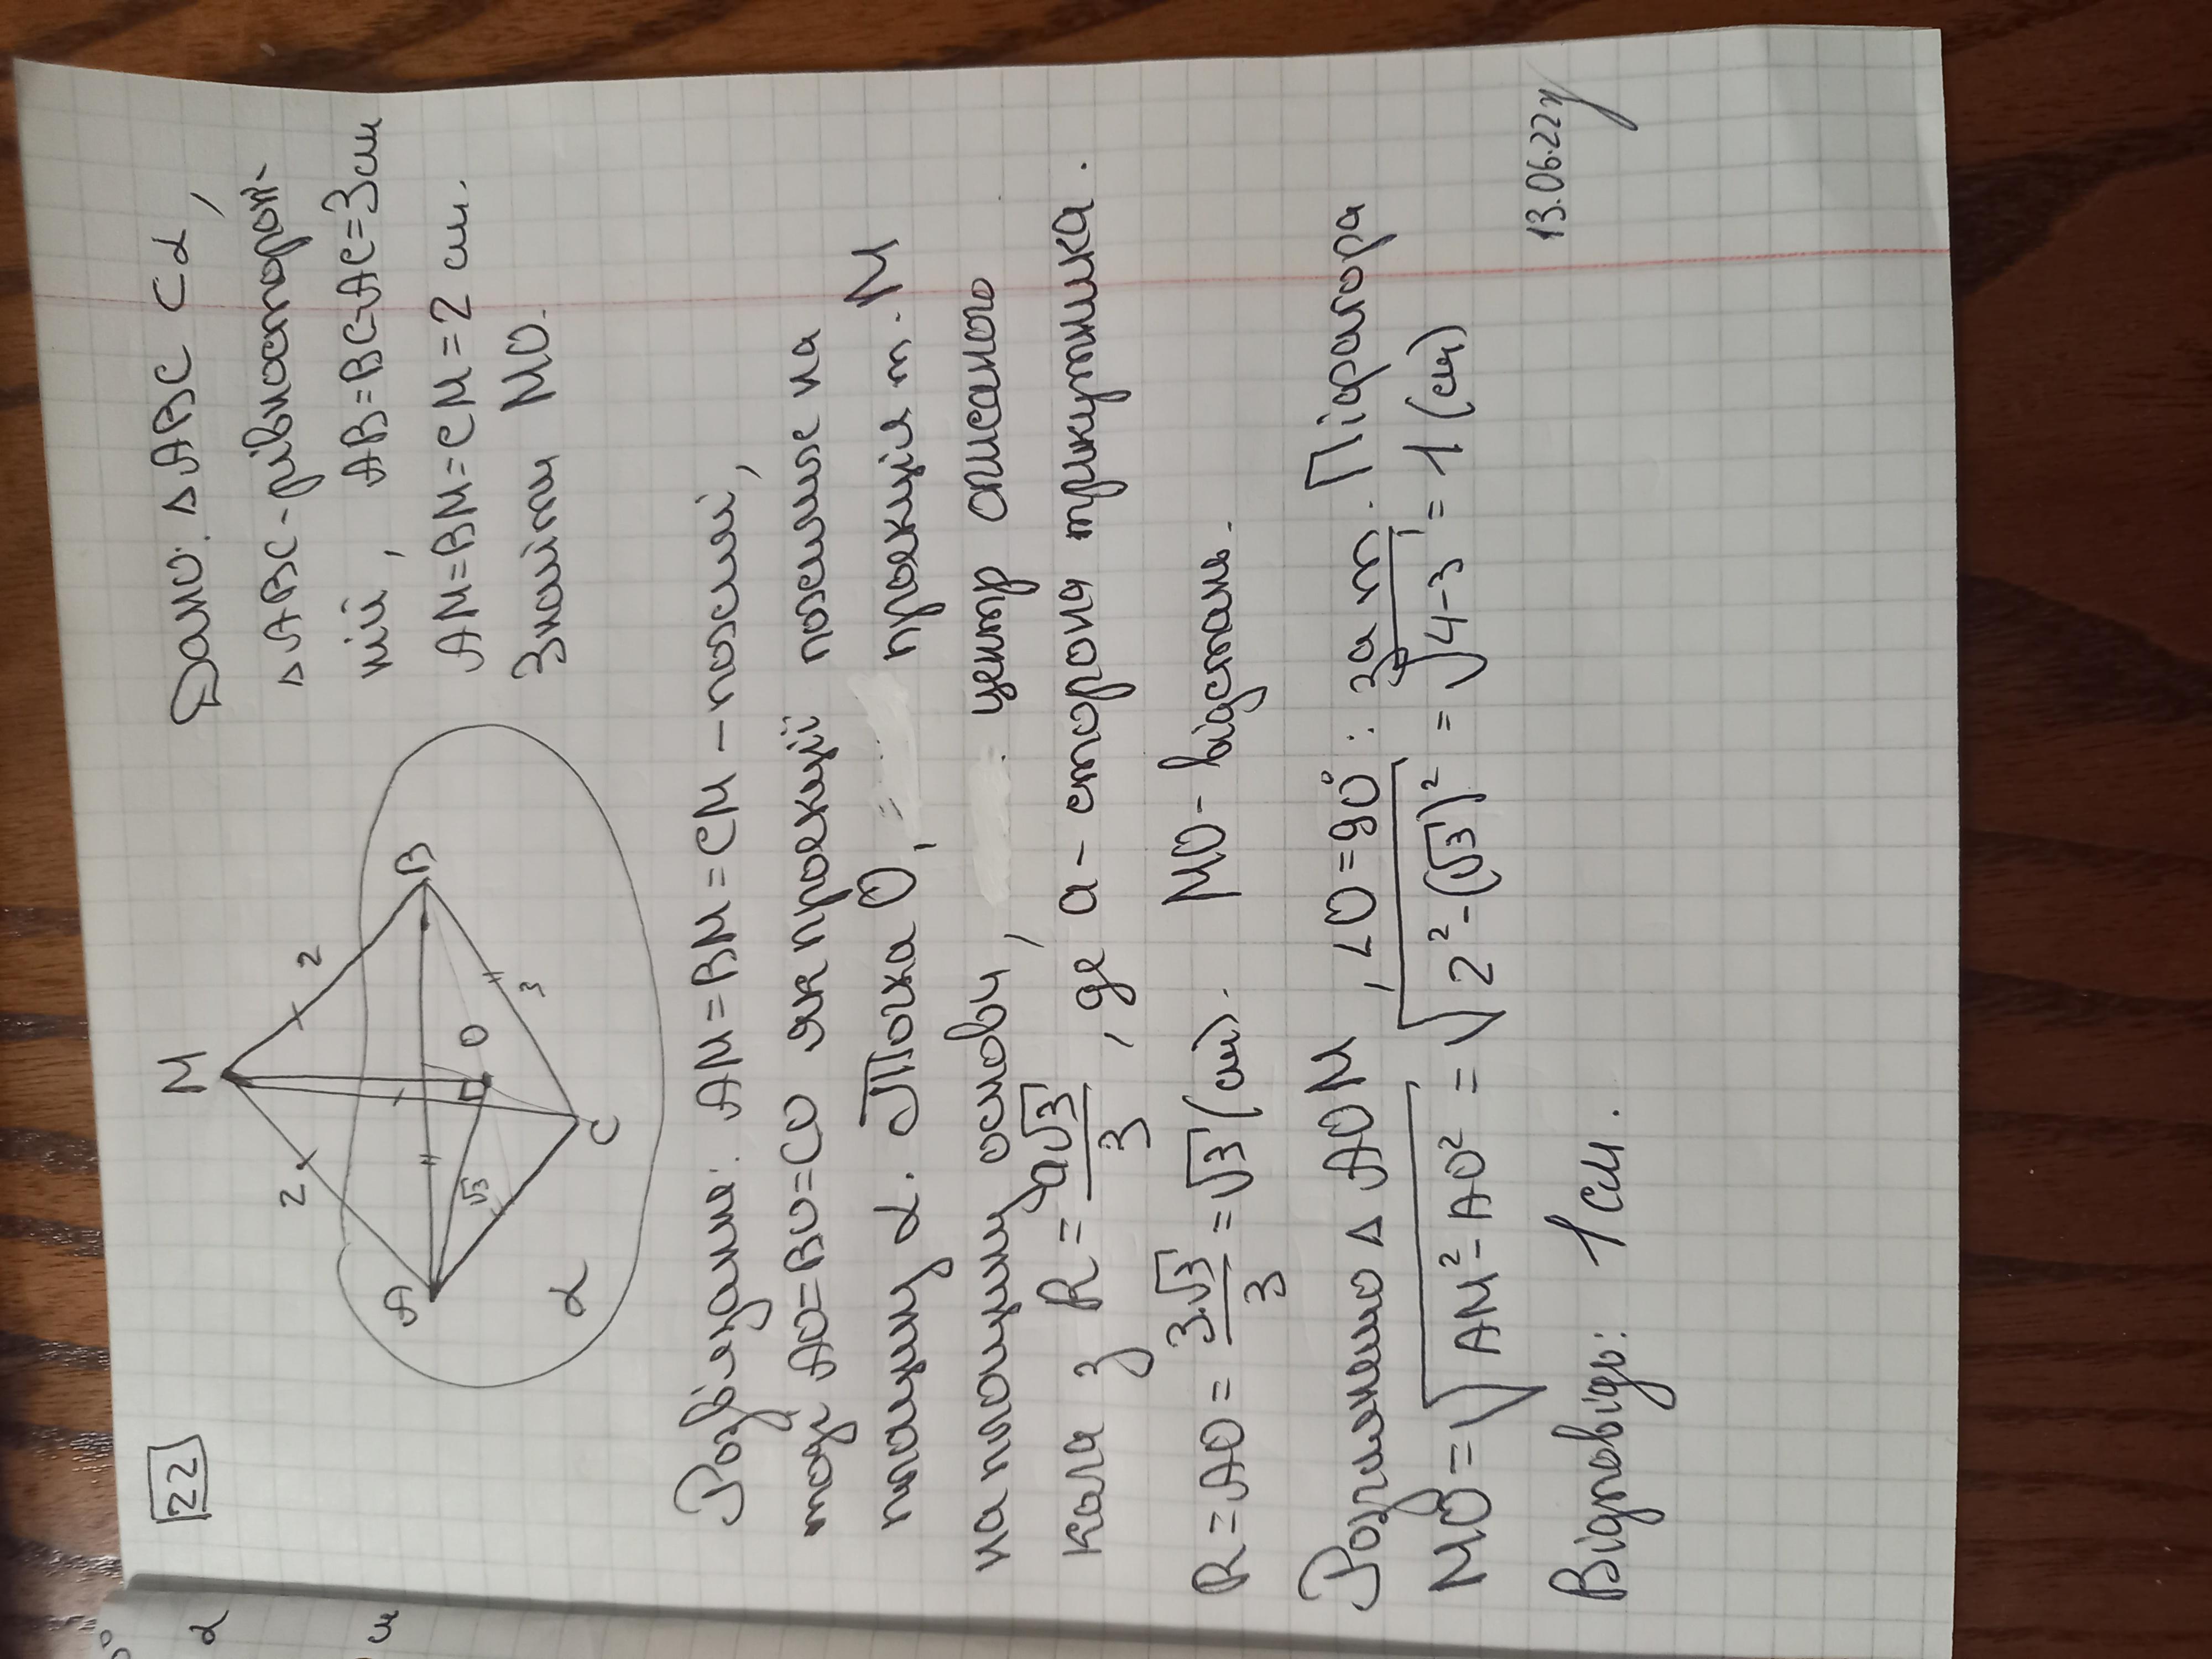 22
Дано: △ABC ⊂ α,
△ABC - рівносторон-
ній, AB=BC=AC=3см
AM=BM=CM=2 см.
Знайти MO.
M
2
2
A
B
√3
O
3
C
α
Розв'язання: AM=BM=CM - похилі,
тоді AO=BO=CO як проекції похилих на
площину α. Точка O, = проекція т. M
на площину основи, центр описаного
кола з R = a√3/3, де a - сторона трикутника.
R = AO = 3·√3/3 = √3 (см). MO - відстань.
Розглянемо △ AOM, ∠O=90°: За т. Піфагора
MO = √AM²-AO² = √2²-(√3)² = √4-3 = 1 (см)
Відповідь: 1 см.
13.06.22
α
см